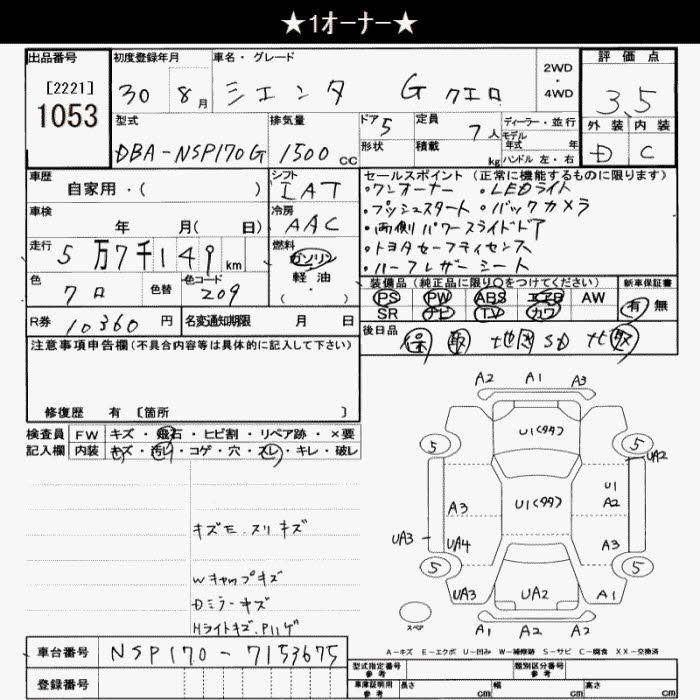 ★1オーナー★
出品番号
[2221]
1053
初度登録年月
30 8月
車名・グレード
シエンタ G クエロ
2WD
・
4WD
評価点
3.5
外装 内装
D C
型式
DBA-NSP170G
排気量
1500 cc
ドア 5
形状
定員
7人
積載
kg
ディーラー・並行
モデル
年式 年
ハンドル 左・右
車歴
自家用・( )
シフト
IAT
車検
年 月( 日)
冷房
AAC
走行
5万7千149km
燃料
ガソリン
軽油
色
クロ
色替
色コード
209
R券
10360円
名変通知期限 月 日
セールスポイント (正常に機能するものに限ります)
・ワンオーナー ・LEDライト
・プッシュスタート ・バックカメラ
・両側パワースライドドア
・トヨタセーフティセンス
・ハーフレザーシート
装備品(純正品に限り○をつけてください)
PS PW ABS エアB AW
SR ナビ TV カワ
新車保証書
有 無
後日品
保 取 地図SD
注意事項申告欄(不具合内容等は具体的に記入して下さい)
修復歴 有 [箇所 ]
検査員
記入欄
FW キズ・飛石・ヒビ割・リペア跡・×要
内装 キズ・汚レ・コゲ・穴・スレ・キレ・破レ
キズE.スリキズ
Wキャップキズ
Dミラーキズ
HライトキズP.11ゲ
A2 A1 A3
U1(タタ)
5 5
UA2
A3
U1(タタ)
U1
A2
UA3
UA4
A3
5 5
UA3
UA2
A1
スペア
A1 A2 A2
A-キズ E-エクボ U-凹み W-補修跡 S-サビ C-腐食 XX-交換済
車台番号 NSP170-7153675
登録番号
型式指定番号
参考
類別区分番号
参考
車庫証明用
参考
長さ cm 幅 cm 高さ cm